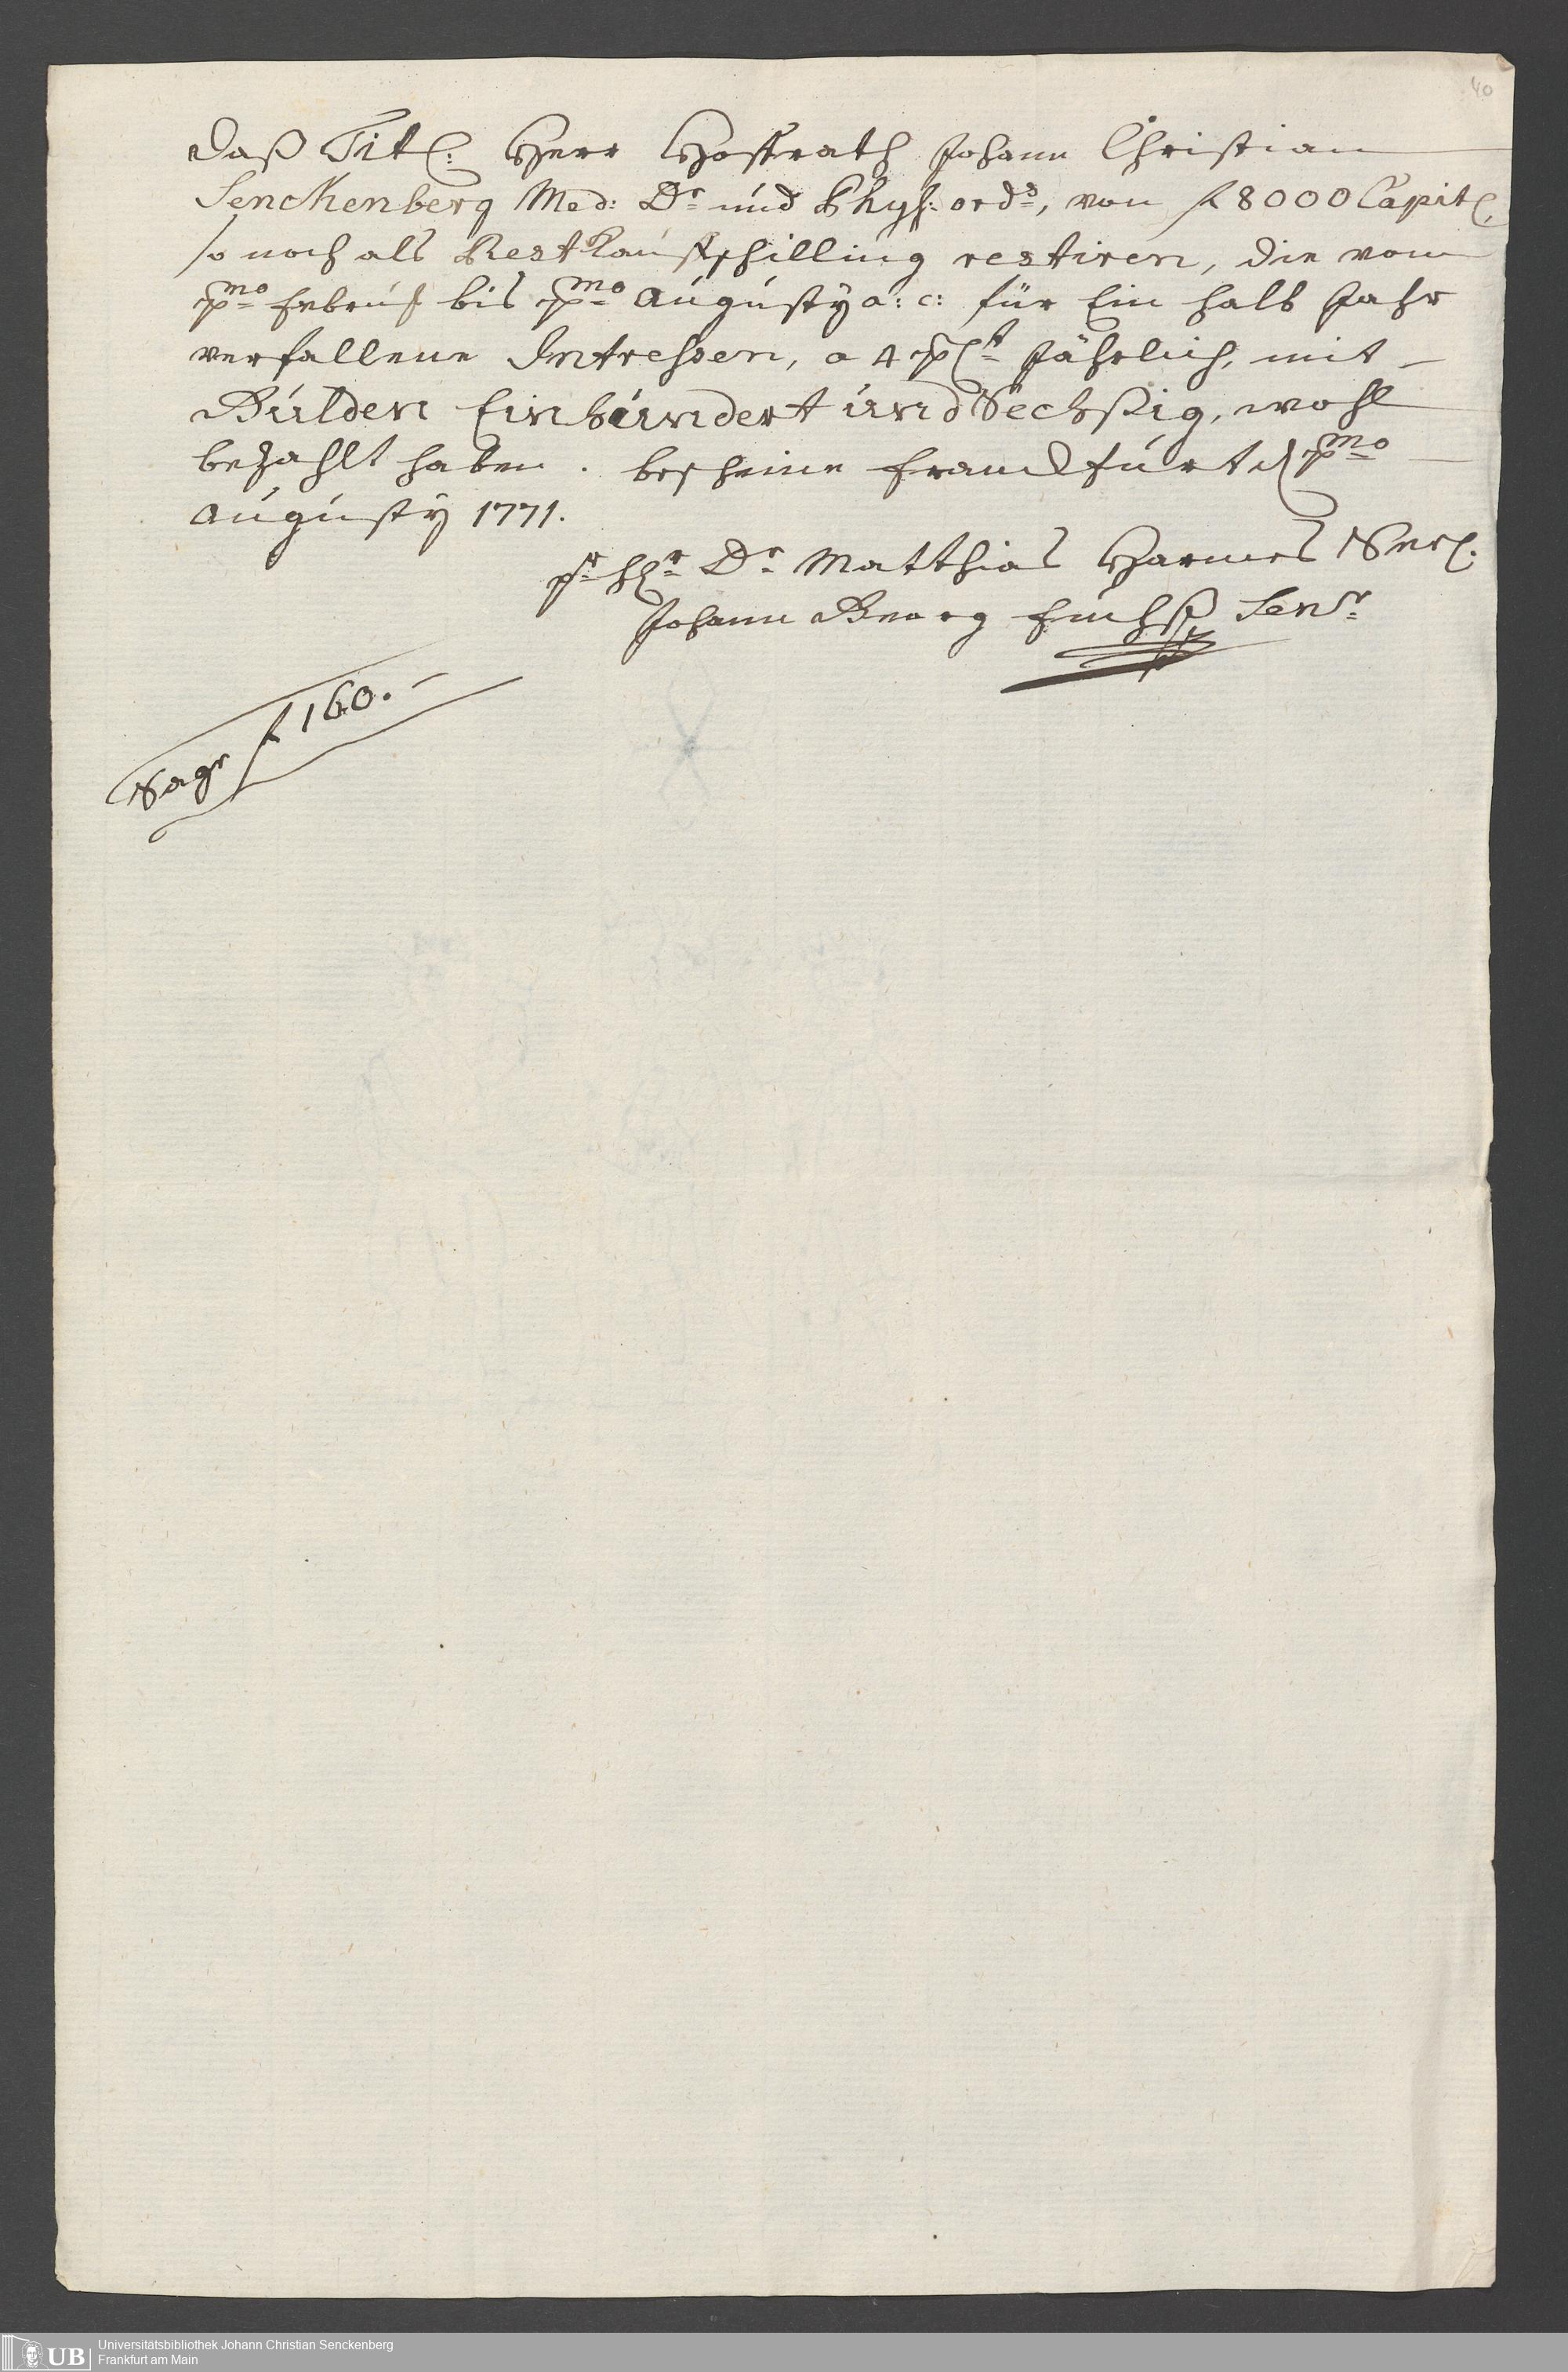 40
Daß Titl: Herr Hoffrath Johann Christian
Senckenberg Med: Dr und Phys: ords, von f 8000 Capitl,
so noch als Rest Kauffschilling restiren, die vom
pmo Februj bis pmo Augusty a: c: für Ein halb Jahr
verfallene Intressen, a 4 pCt Jährlich, mit
Gulden Einhundert und Sechßig, wohl
bezahlt haben. bescheine Franckfurt d pmo
Augusty 1771.
pr Hr Dr Matthias Harmes Seel.
Johann Georg Fuchß Senr
Sage f 160.-
UB Universitätsbibliothek Johann Christian Senckenberg
Frankfurt am Main